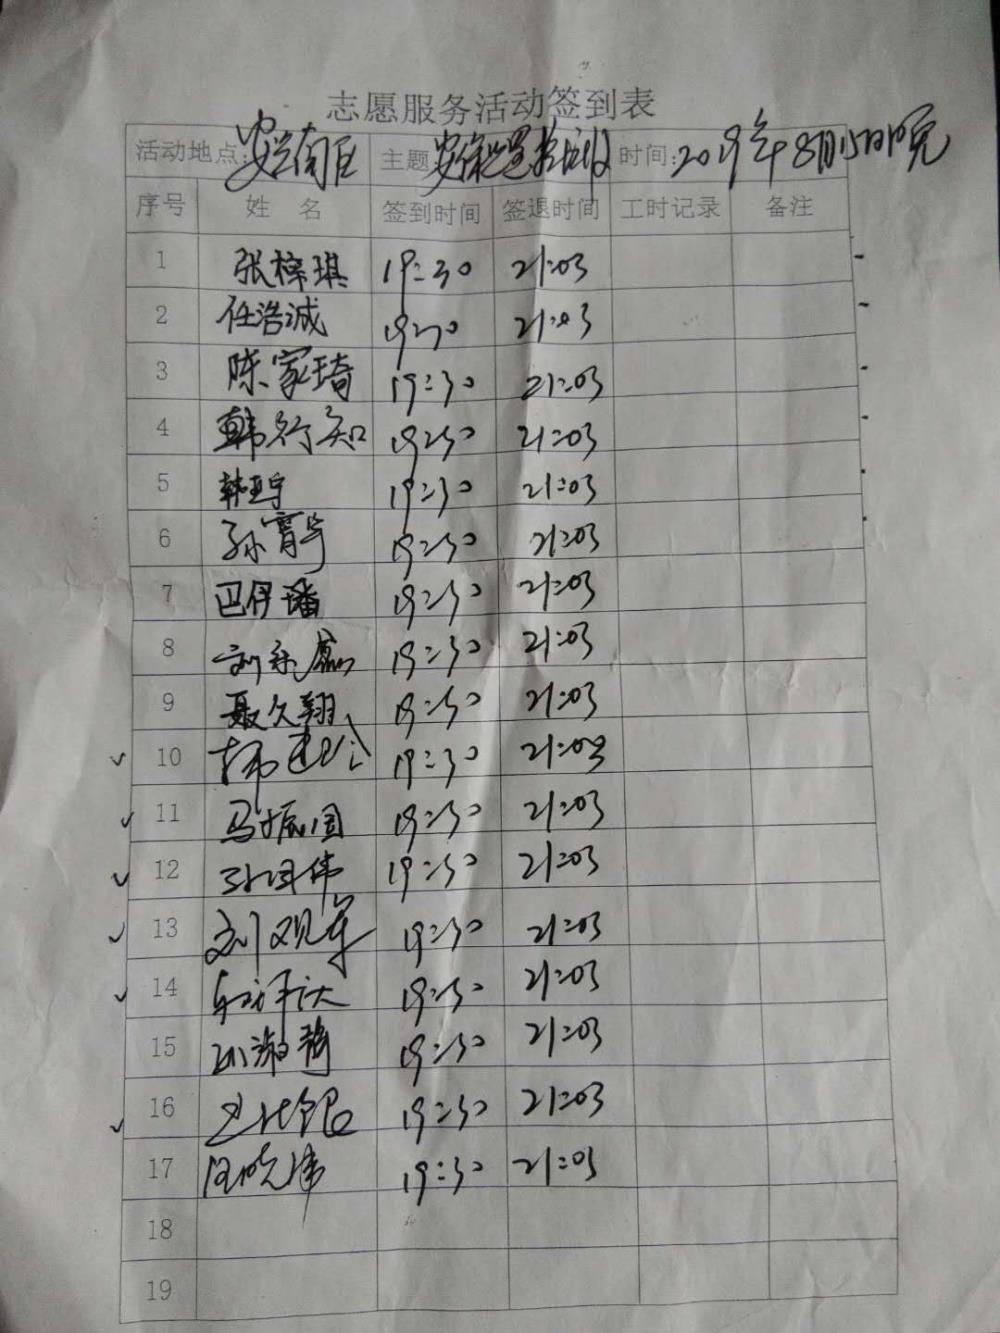 志愿服务活动签到表
活动地点: 安兰南区 主题 时间: 2019年8月15日晚
序号 姓名 签到时间 签退时间 工时记录 备注
1 张梓琪 19:30 21:03
2 任浩诚 19:30 21:03
3 陈家琦 19:30 21:03
4 韩行知 19:30 21:03
5 韩亚宁 19:30 21:03
6 孙霄宇 19:30 21:03
7 巴伊璠 19:30 21:03
8 19:30 21:03
9 聂久翔 19:30 21:03
10 19:30 21:03
11 马振国 19:30 21:03
12 孙国伟 19:30 21:03
13 刘观军 19:30 21:03
14 19:30 21:03
15 孙淑静 19:30 21:03
16 19:30 21:03
17 闫晓伟 19:30 21:03
18
19